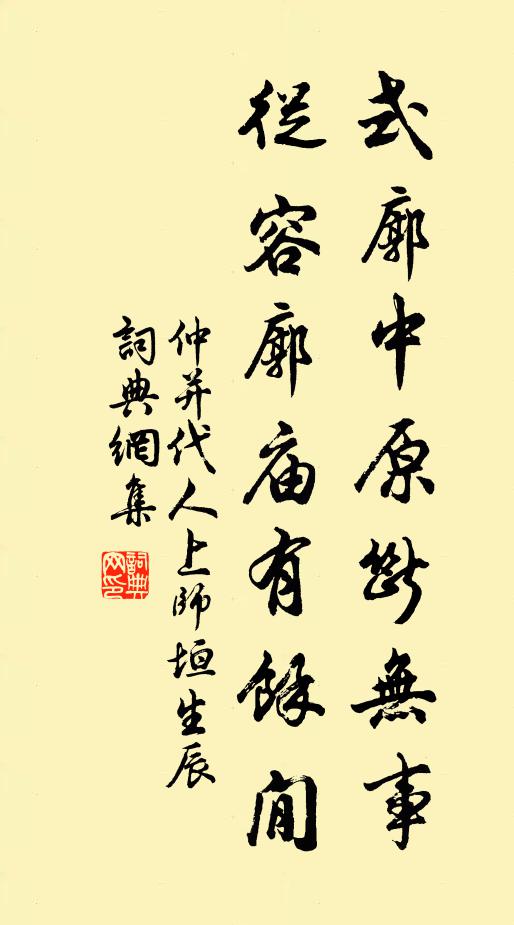 式廓中原斷無事
從容廓庙有餘閒
仲并代人上師垣生辰
詞典網集
詞典
网印